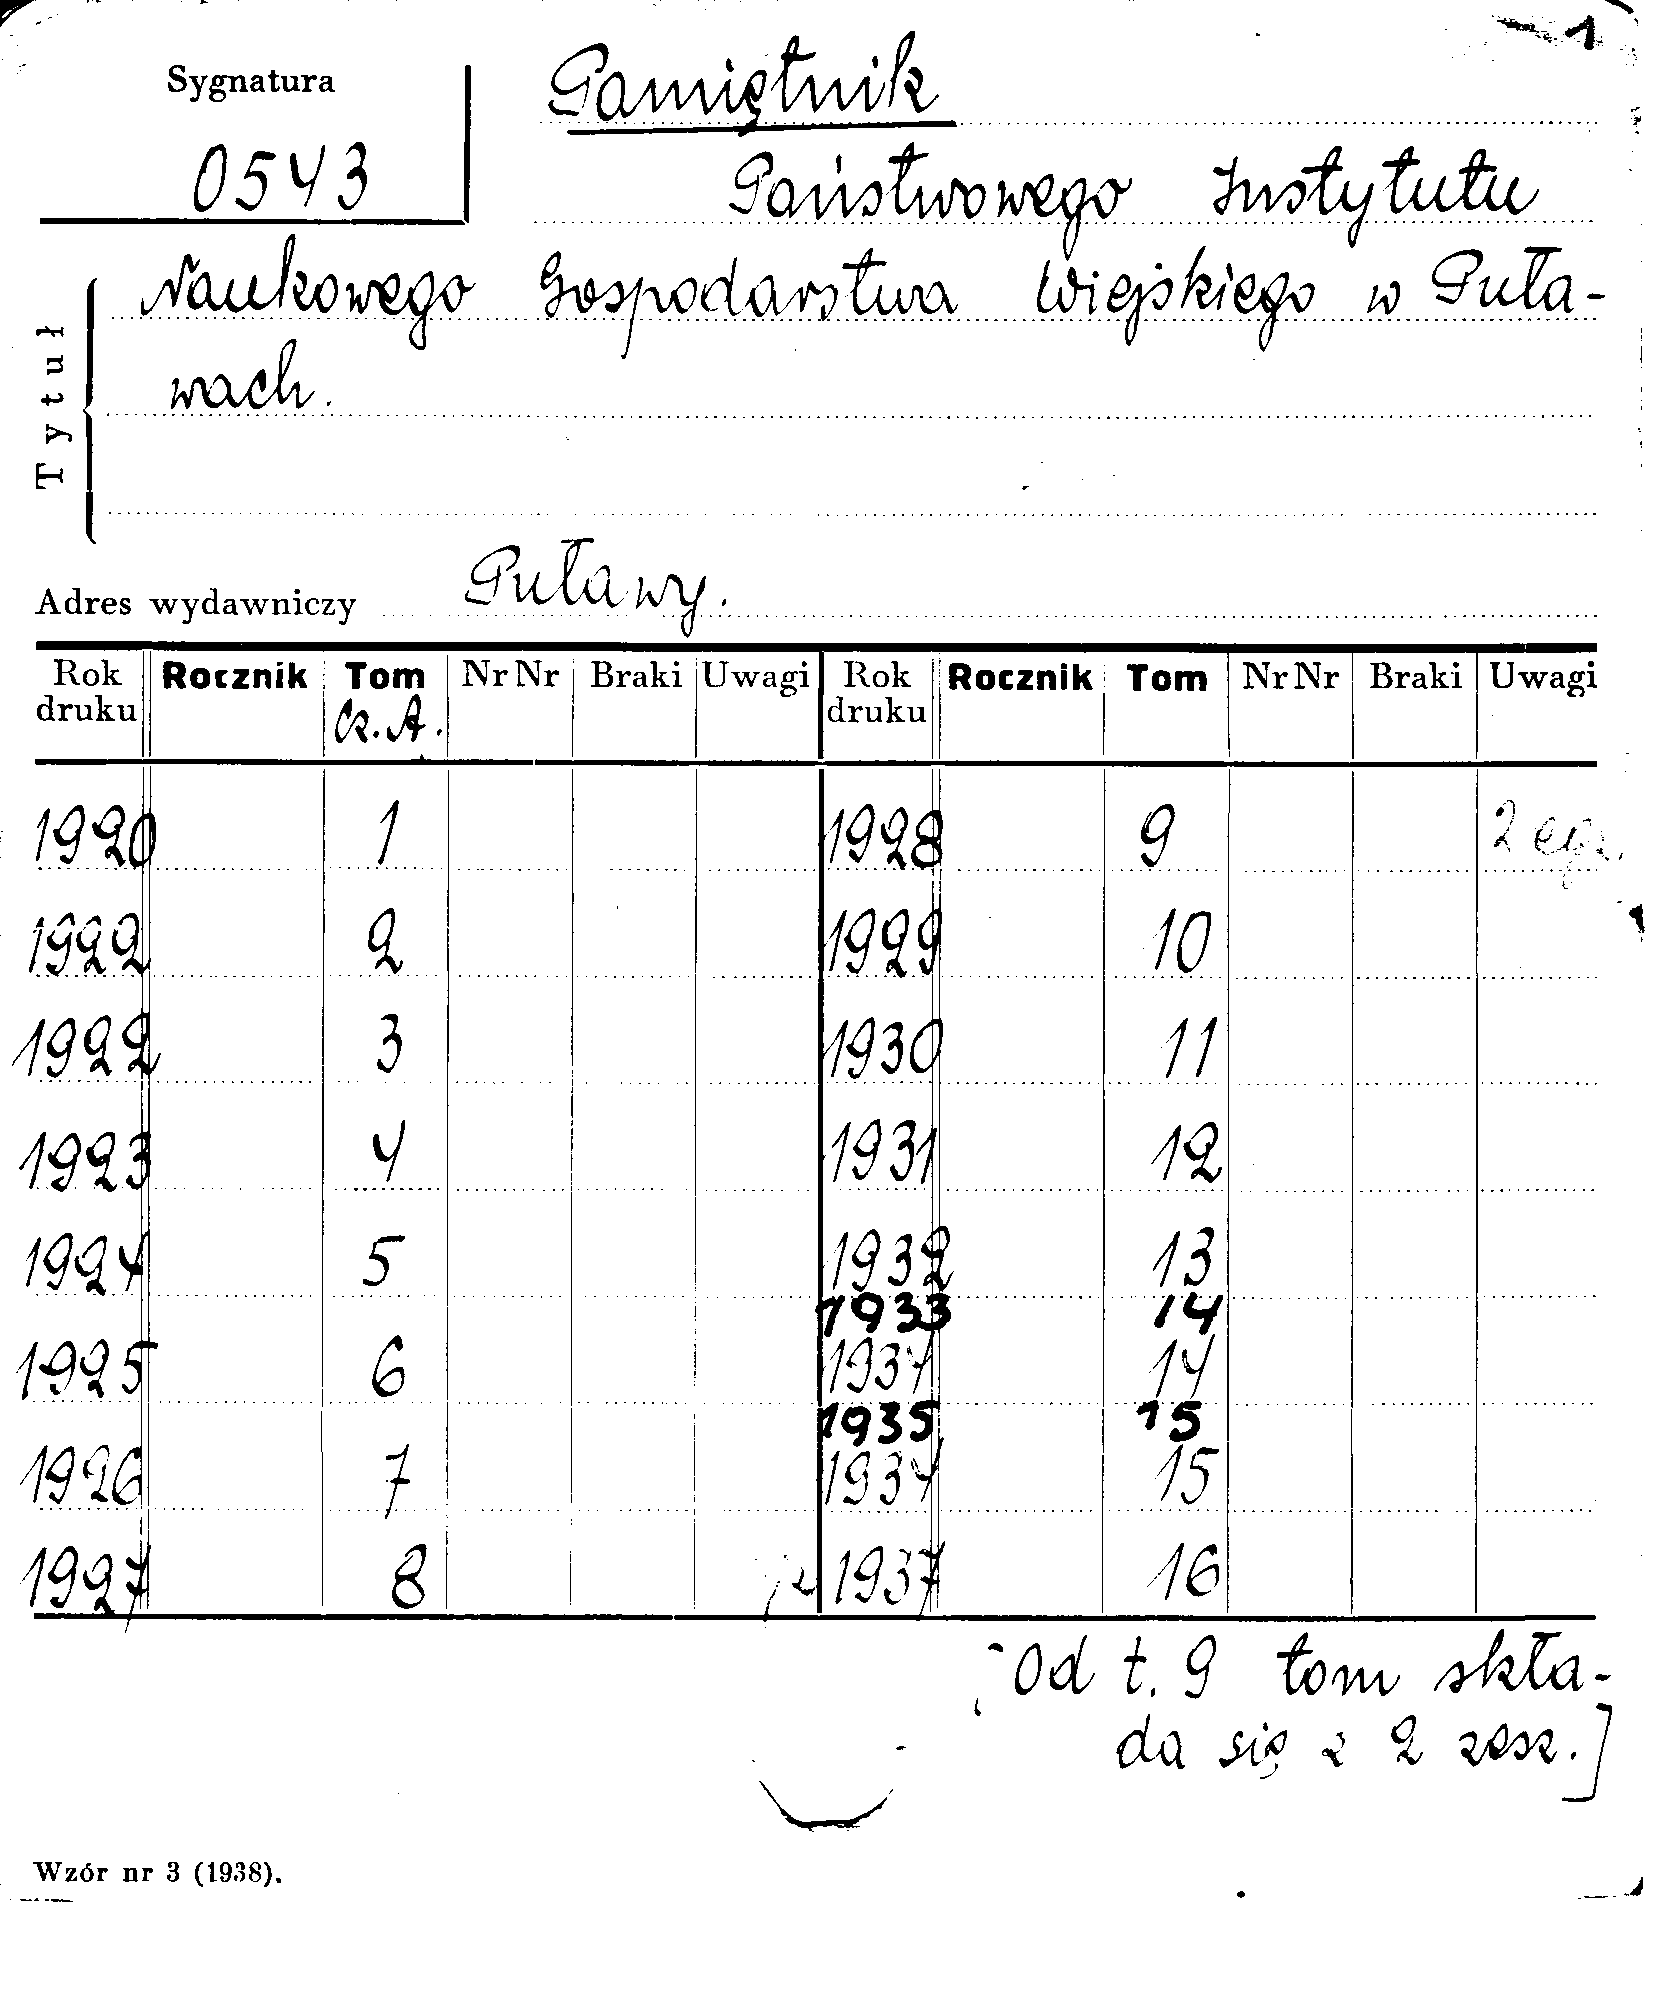 1
Sygnatura
0543
Pamiętnik
Państwowego Instytutu
Naukowego Gospodarstwa Wiejskiego w Puła-
wach.
Tytuł
Adres wydawniczy Puławy.
Rok druku Rocznik Tom Nr Nr Braki Uwagi Rok druku Rocznik Tom Nr Nr Braki Uwagi
Cz. A.
1920 1 1928 9 2 egz.
1922 2 1929 10
1922 3 1930 11
1923 4 1931 12
1924 5 1932 13
1933 14
1925 6 1934 14
1935 15
1926 7 1934 15
1927 8 1937 16
Od t. 9 tom skła-
da się z 2 zesz.]
Wzór nr 3 (1938).